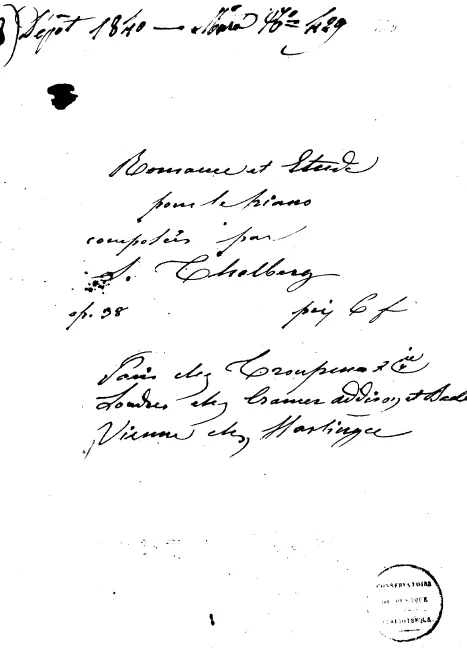 Dépôt 1840 — Mars N° 429
Romance et Etude
pour le piano
composées par
S. Thalberg
op. 38 prix 6 f
Paris chez Troupenas & Cie
Londres chez Cramer addison et Beale
Vienne chez Haslinger
CONSERVATOIRE
DE MUSIQUE
BIBLIOTHÈQUE